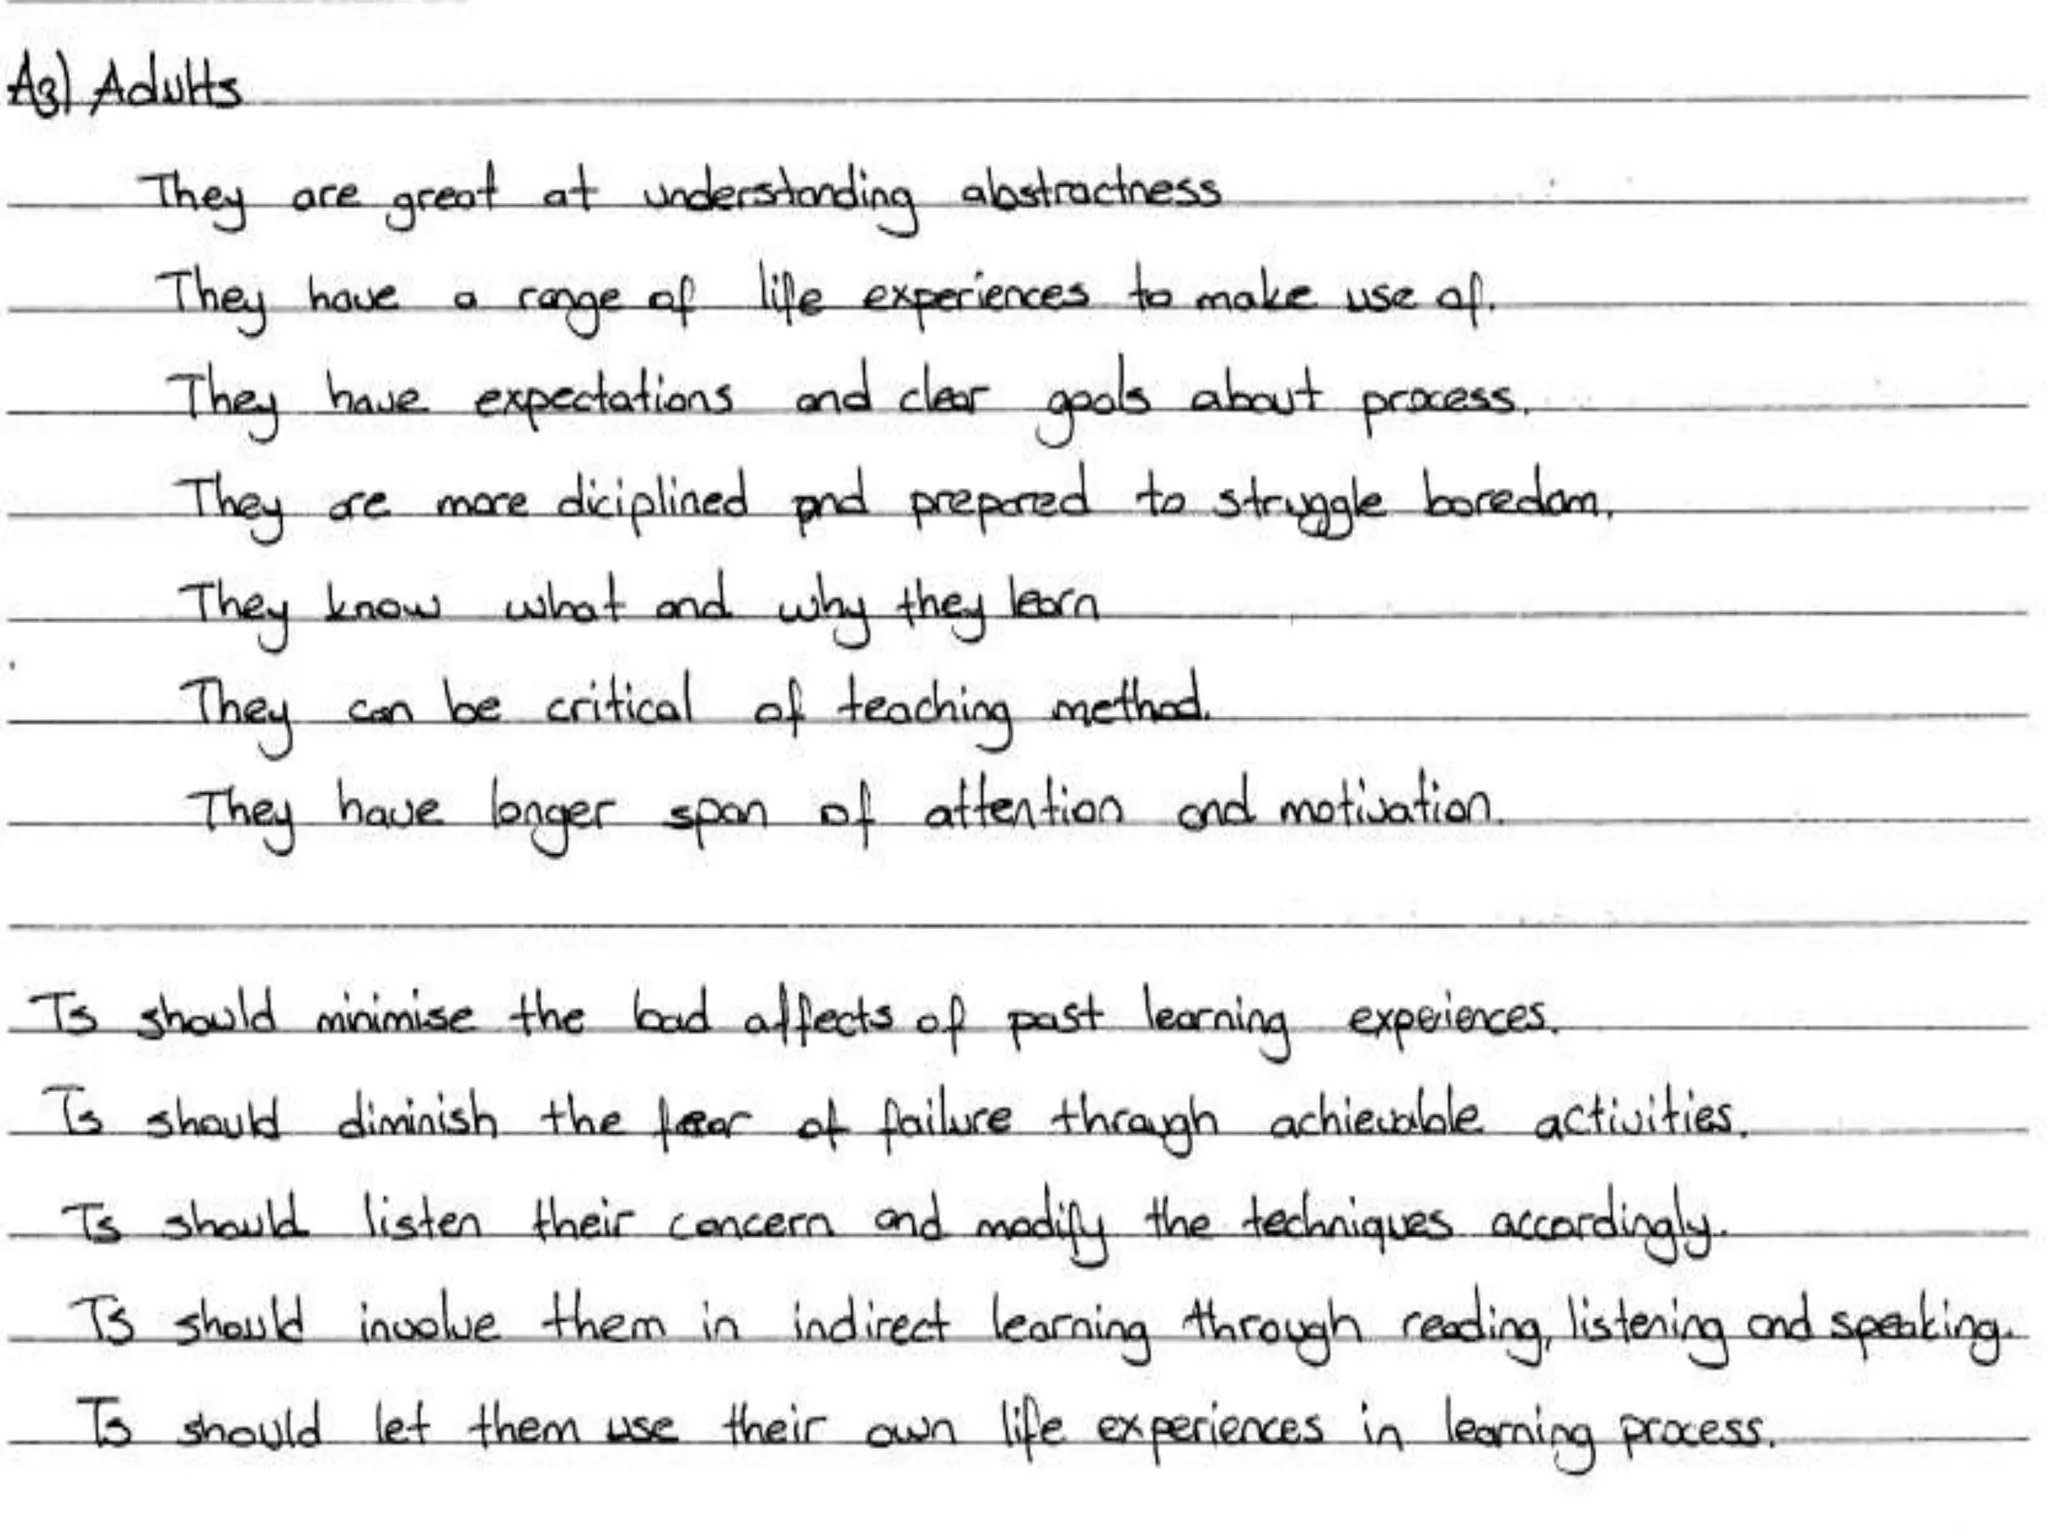 A3) Adults
They are great at understanding abstractness
They have a range of life experiences to make use of.
They have expectations and clear goals about process.
They are more diciplined and prepared to struggle boredom.
They know what and why they learn
They can be critical of teaching method.
They have longer span of attention and motivation.
Ts should minimise the bad affects of past learning experiences.
Ts should diminish the fear of failure through achievable activities.
Ts should listen their concern and modify the techniques accordingly.
Ts should involve them in indirect learning through reading, listening and speaking.
Ts should let them use their own life experiences in learning process.